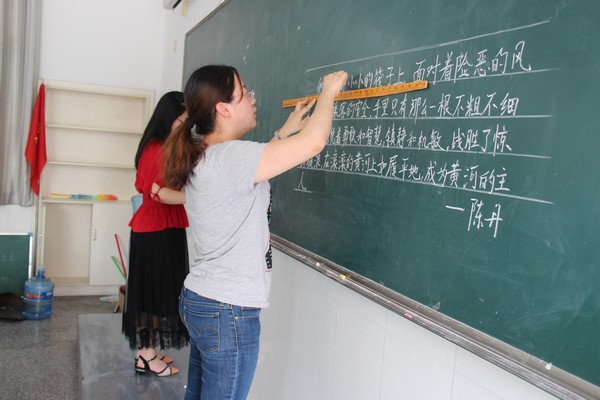 小小的筏子上,面对着险恶的风
客的安全,手里只有那么一根不粗不细
着勇敢和智慧,镇静和机敏,战胜了惊
在滚滚的黄河上如履平地,成为黄河的主
人
—陈丹